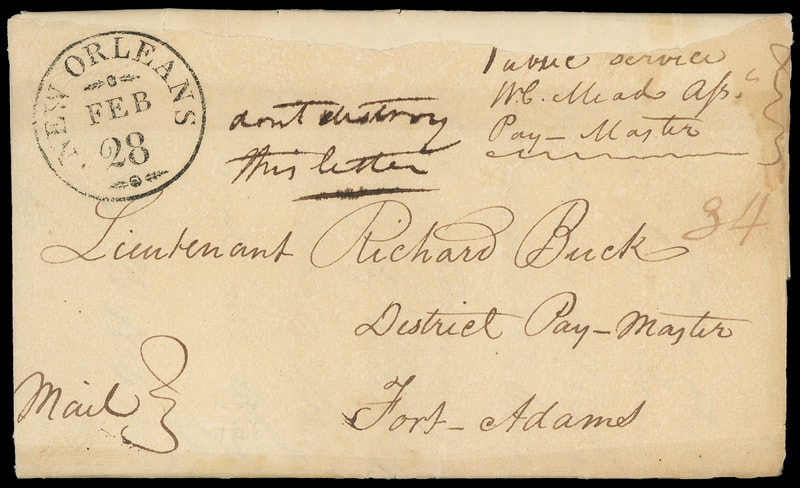 NEW ORLEANS
FEB
28
dont destroy
this letter
service
W.C. Mead Asst
Pay-Master
34
Lieutenant Richard Buck
District Pay-Master
Fort-Adams
Mail